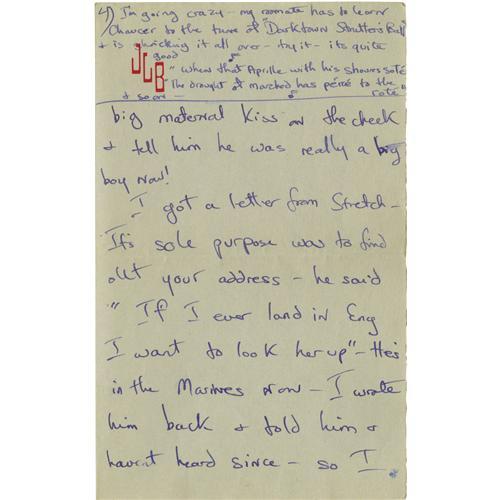 4) I'm going crazy - my roomate has to learn
Chaucer to the tune of "Darktown Strutters Ball"
& is shrieking it all over - try it - its quite
good
JLB
"When that Aprille with his shoures soté
"The drought of marched has percé to the
rote"
& so on -
big maternal kiss on the cheek
& tell him he was really a big
boy now!
I got a letter from Stretch -
It's sole purpose was to find
out your address - he said
"If I ever land in Eng
I want to look her up" - He's
in the Marines now - I wrote
him back & told him &
havent heard since - so I